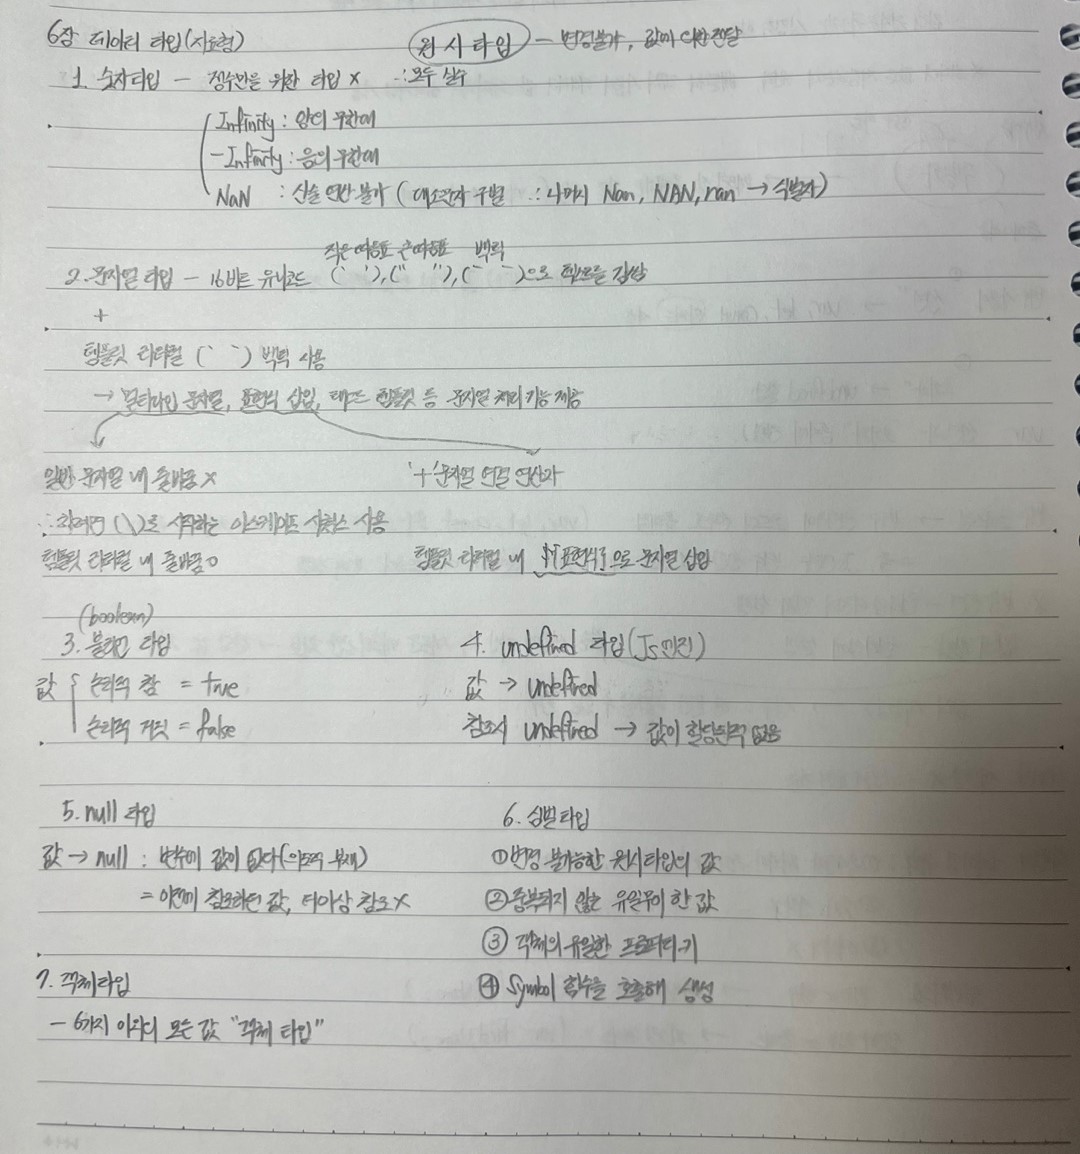 6장 데이터 타입(자료형) 원시타입 - 변경불가, 값에 의한 전달
1. 숫자타입 - 정수만을 위한 타입 x ∴모두 실수
Infinity : 양의 무한대
-Infinity : 음의 무한대
NaN : 산술 연산 불가 ( 대소문자 구별 ∴ 나머지 Nan, NAN, nan → 식별자)
작은따옴표 큰따옴표 백틱
2. 문자열 타입 - 16비트 유니코드 (' '), (" "), (` `)으로 텍스트를 감쌈
+
템플릿 리터럴 (` `) 백틱 사용
→ 멀티라인 문자열, 표현식 삽입, 태그드 템플릿 등 문자열 처리 기능 제공
일반 문자열 내 줄바꿈 x '+' 문자열 연결 연산자
∴ (\)로 시작하는 이스케이프 시퀀스 사용
템플릿 리터럴 내 줄바꿈 o 템플릿 리터럴 내 ${표현식}으로 문자열 삽입
(boolean)
3. 불리언 타입 4. undefined 타입(JS엔진)
값 논리적 참 = true 값 → undefined
논리적 거짓 = false 참조시 undefined → 값이 할당된적 없음
5. null 타입 6. 심벌타입
값 → null : 변수에 값이 없다(의도적 부재) ① 변경 불가능한 원시타입의 값
= 이전에 참조하던 값, 더이상 참조 x ② 중복되지 않는 유일무이 한 값
③ 객체의 유일한 프로퍼티 키
7. 객체타입 ④ Symbol 함수를 호출해 생성
- 6가지 이외의 모든 값 "객체 타입"